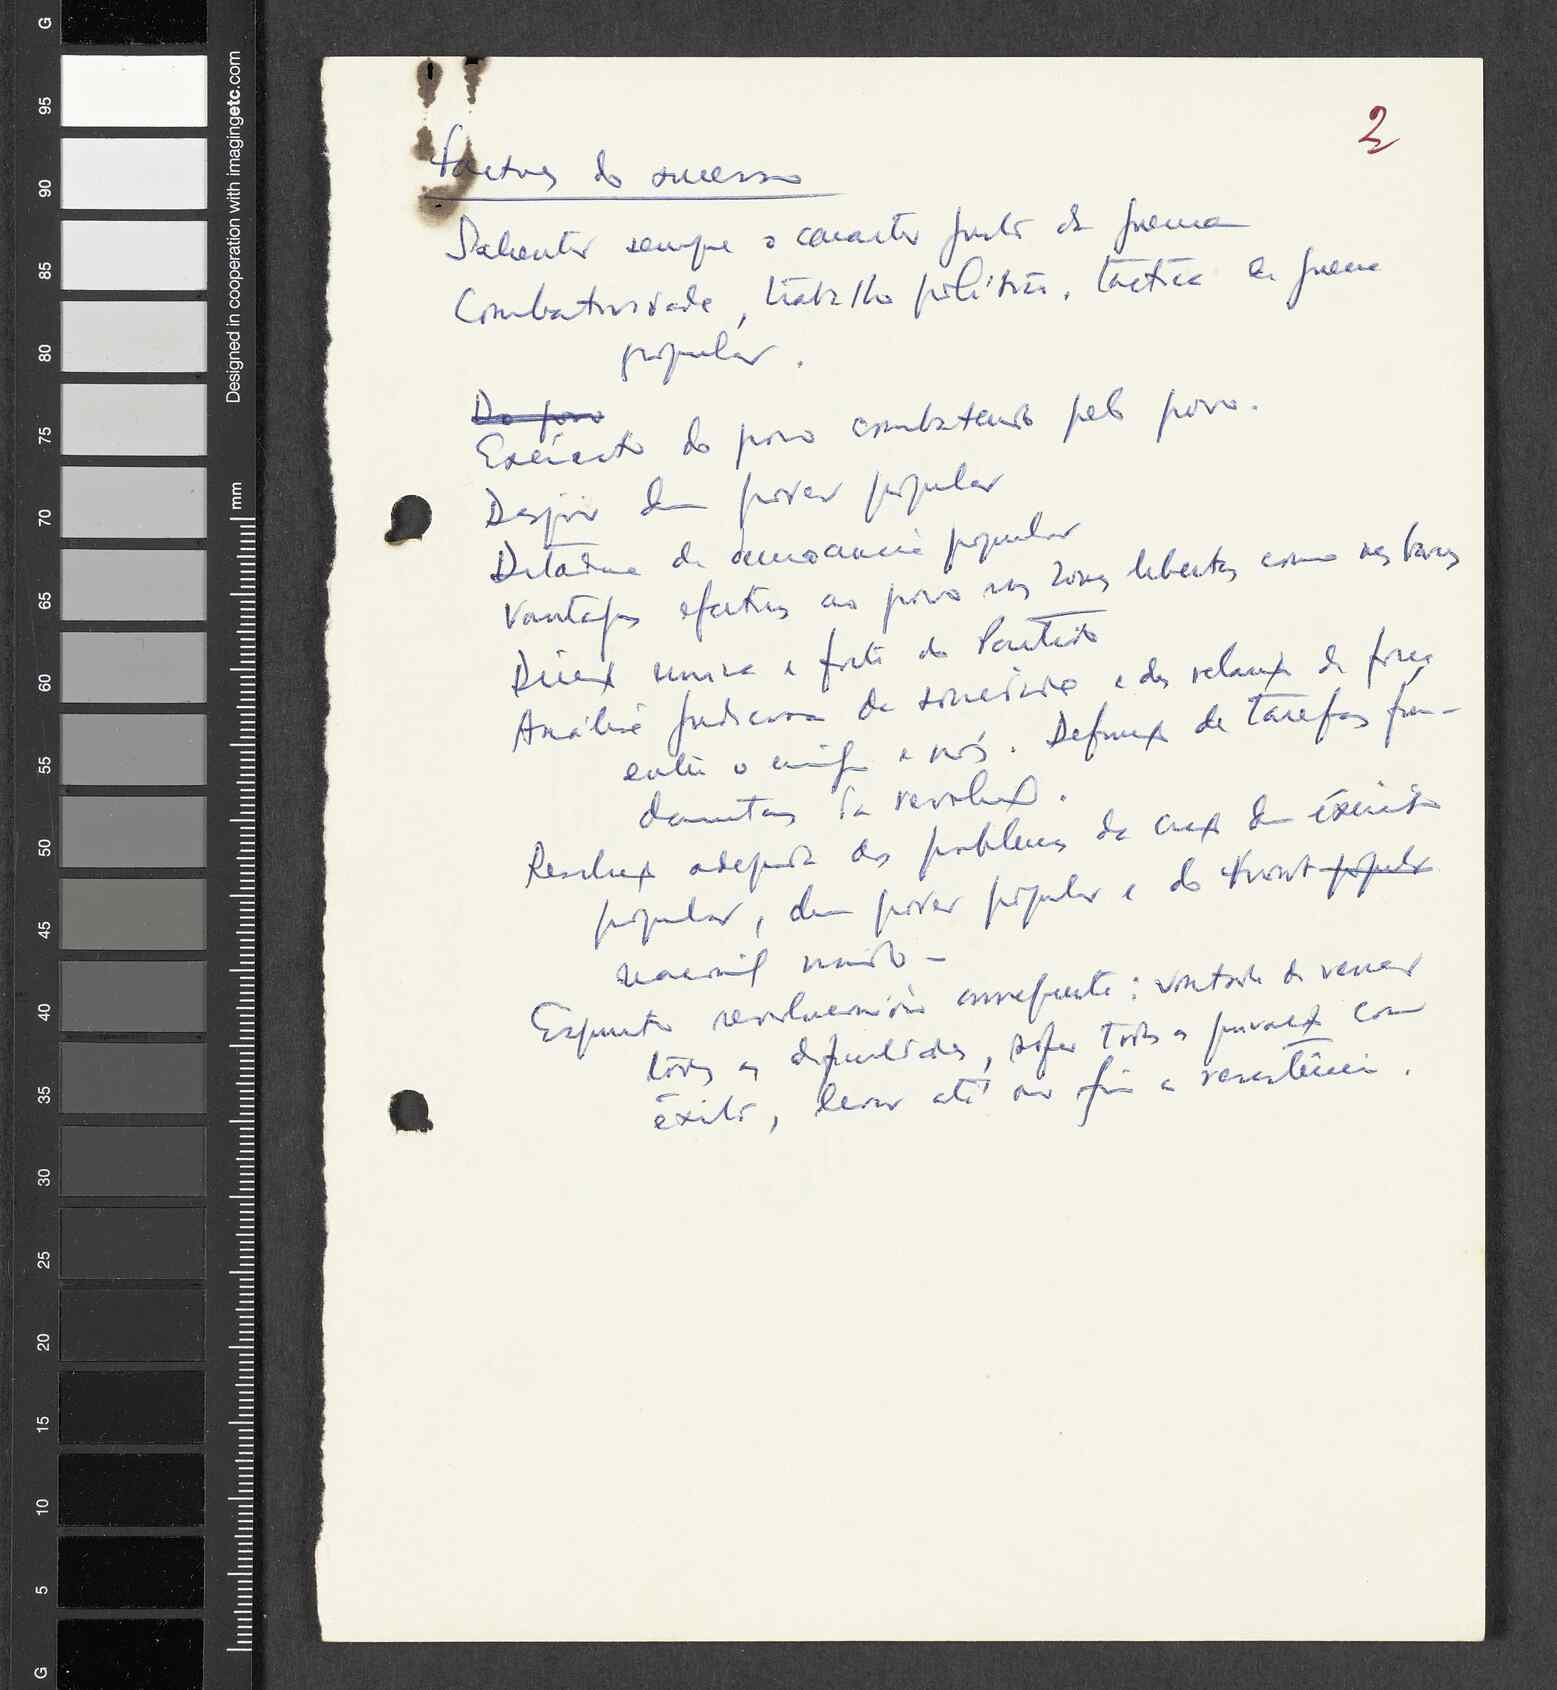 2
Factores do sucesso
Salientar sempre o caracter justo da guerra
Combatividade, trabalho político, táctica da guerra
popular.
Do povo
Exército do povo combatendo pelo povo.
Dispôr dum poder popular
Ditadura da democracia popular
Vantagens efectivas ao povo nas zonas libertas como nas bases
Direcx única e forte do Partido
Análise judiciosa da sociedade e das relaçx de força
entre o inimigo e nós. Definix de tarefas fun-
damentais da revoluçx.
Resoluçx adequada dos problemas da criaçx dum éxército
popular, dum poder popular e do front popular
nacional unido-
Espírito revolucionário consequente: vontade de vencer
todas as dificuldades, sofrer todas as privaçx com
êxito, levar até ao fim a resistência.
Designed in cooperation with imagingetc.com
mm
G
95
90
85
80
75
70
65
60
55
50
45
40
35
30
25
20
15
10
5
G